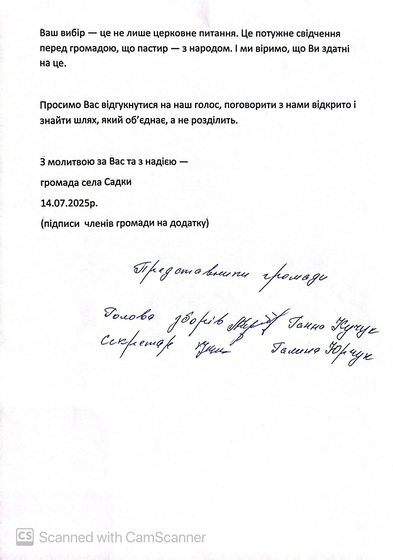 Ваш вибір — це не лише церковне питання. Це потужне свідчення
перед громадою, що пастир — з народом. І ми віримо, що Ви здатні
на це.
Просимо Вас відгукнутися на наш голос, поговорити з нами відкрито і
знайти шлях, який об’єднає, а не розділить.
З молитвою за Вас та з надією —
громада села Садки
14.07.2025р.
(підписи членів громади на додатку)
Представники громади
Голова зборів Ганна Кучук
Секретар Галина Юрчук
CS Scanned with CamScanner